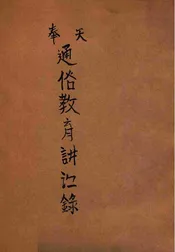 奉天
通俗教育講演錄